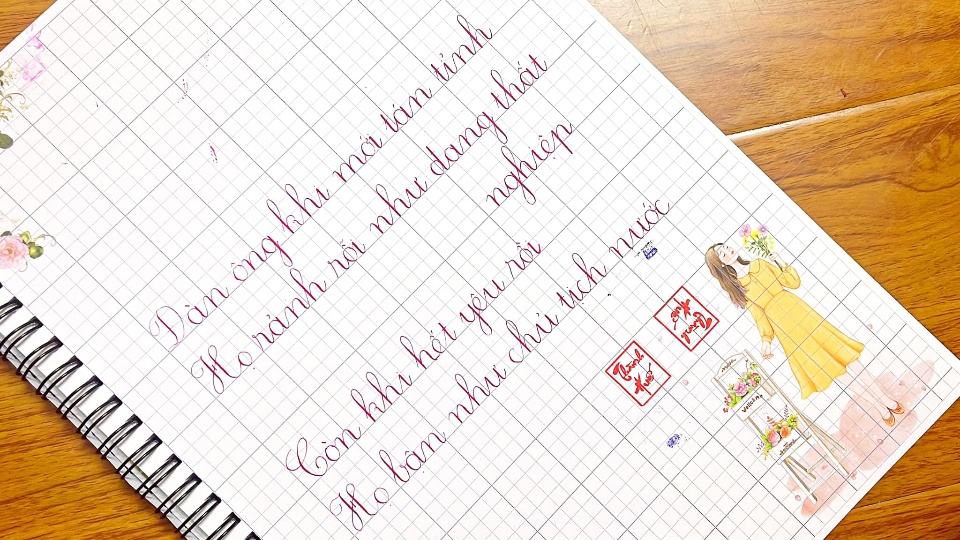 Đàn ông khi mới tán tỉnh
Họ rảnh rỗi như đang thất
nghiệp
Còn khi hết yêu rồi
Họ bận như chủ tịch nước
Thành
Huế
Thành
Huế